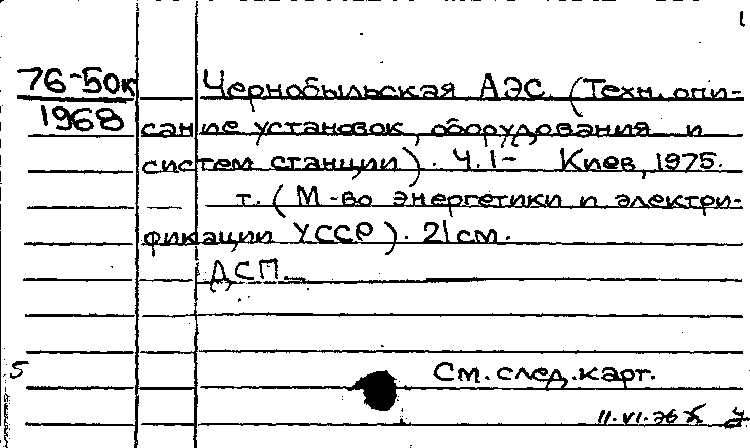 76-50к
1968
Чернобыльская АЭС. (Техн. опи-
сание установок, оборудования и
систем станции). Ч.1- Киев, 1975.
т. (М-во энергетики и электри-
фикации УССР). 21 см.
ДСП.
5
См. след. карт.
11.VI.76